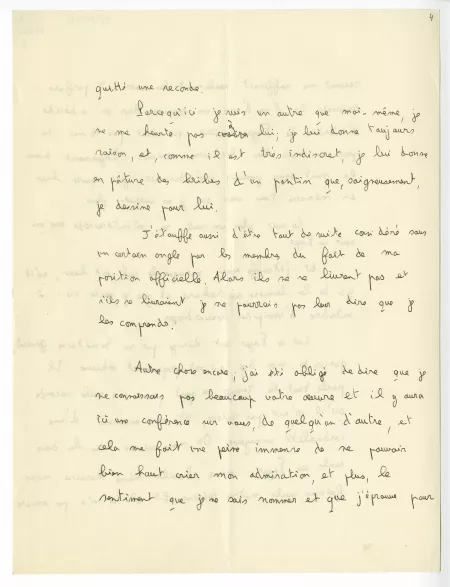 4
quitté une seconde.
Parce qu'ici je suis un autre que moi-même, je
ne me heurte pas à lui, je lui donne toujours
raison, et, comme il est très indiscret, je lui donne
en pâture des bribes d'un pantin que, soigneusement,
je dessine pour lui.
J'étouffe aussi d'être tout de suite considéré sous
un certain angle par les membres du fait de ma
position officielle. Alors ils ne se livrent pas et
s'ils se livraient je ne pourrais pas leur dire que je
les comprends.
Autre chose encore, j'ai été obligé de dire que je
ne connaissais pas beaucoup votre œuvre et il y aura
ici une conférence sur vous, de quelqu'un d'autre, et
cela me fait une peine immense de ne pouvoir
bien haut crier mon admiration, et plus, le
sentiment que je ne sais nommer et que j'éprouve pour